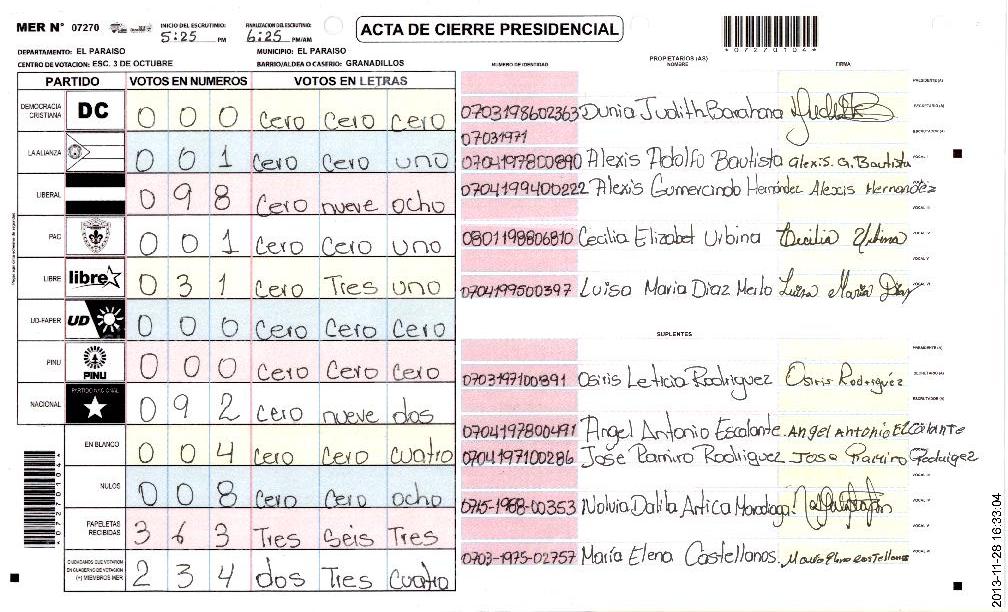 MER N° 07270 INICIO DEL ESCRUTINIO: 5:25 PM FINALIZACION DEL ESCRUTINIO: 6:25 PM/AM
ACTA DE CIERRE PRESIDENCIAL
*07270104*
DEPARTAMENTO: EL PARAISO MUNICIPIO: EL PARAISO
CENTRO DE VOTACION: ESC. 3 DE OCTUBRE BARRIO/ALDEA O CASERIO: GRANADILLOS
PARTIDO VOTOS EN NUMEROS VOTOS EN LETRAS
DEMOCRACIA CRISTIANA DC 0 0 0 Cero Cero Cero
LA ALIANZA 0 0 1 Cero Cero uno
LIBERAL 0 9 8 Cero nueve ocho
PAC 0 0 1 Cero Cero uno
LIBRE libre 0 3 1 Cero Tres uno
UD-FAPER UD 0 0 0 Cero Cero Cero
PINU PINU 0 0 0 Cero Cero Cero
NACIONAL PARTIDO NACIONAL 0 9 2 Cero nueve dos
EN BLANCO 0 0 4 Cero Cero cuatro
NULOS 0 0 8 Cero Cero ocho
PAPELETAS RECIBIDAS 3 6 3 Tres Seis Tres
CIUDADANOS QUE VOTARON EN CUADERNO DE VOTACION (+) MIEMBROS MER 2 3 4 dos Tres Cuatro
*07270104*
NUMERO DE IDENTIDAD PROPIETARIOS (AS) NOMBRE FIRMA
PRESIDENTE (A)
0703198602363 Dunia Judith Barahona SECRETARIO (A)
07031971 ESCRUTADOR (A)
0704197800890 Alexis Adolfo Bautista Alexis. A. Bautista VOCAL I
0704199400222 Alexis Gumercindo Hernández Alexis Hernandez
VOCAL III
0801198806810 Cecilia Elizabet Urbina Cecilia Urbina VOCAL IV
VOCAL V
0704199500397 Luisa Maria Diaz Merlo Luisa Maria Diaz VOCAL VI
SUPLENTES
PRESIDENTE (A)
0703197100891 Osiris Leticia Rodriguez Osiris Rodríguez SECRETARIO (A)
ESCRUTADOR (A)
0704197800491 Angel Antonio Escalante Angel Antonio Escalante
0704197100286 Jose Ramiro Rodriguez Jose Ramiro Rodriguez
0715-1988-00353 Nolvia Dalila Artica
VOCAL V
0703-1975-02757 María Elena Castellanos. Maria Elena Castellanos VOCAL VI
2013-11-28 16:33:04